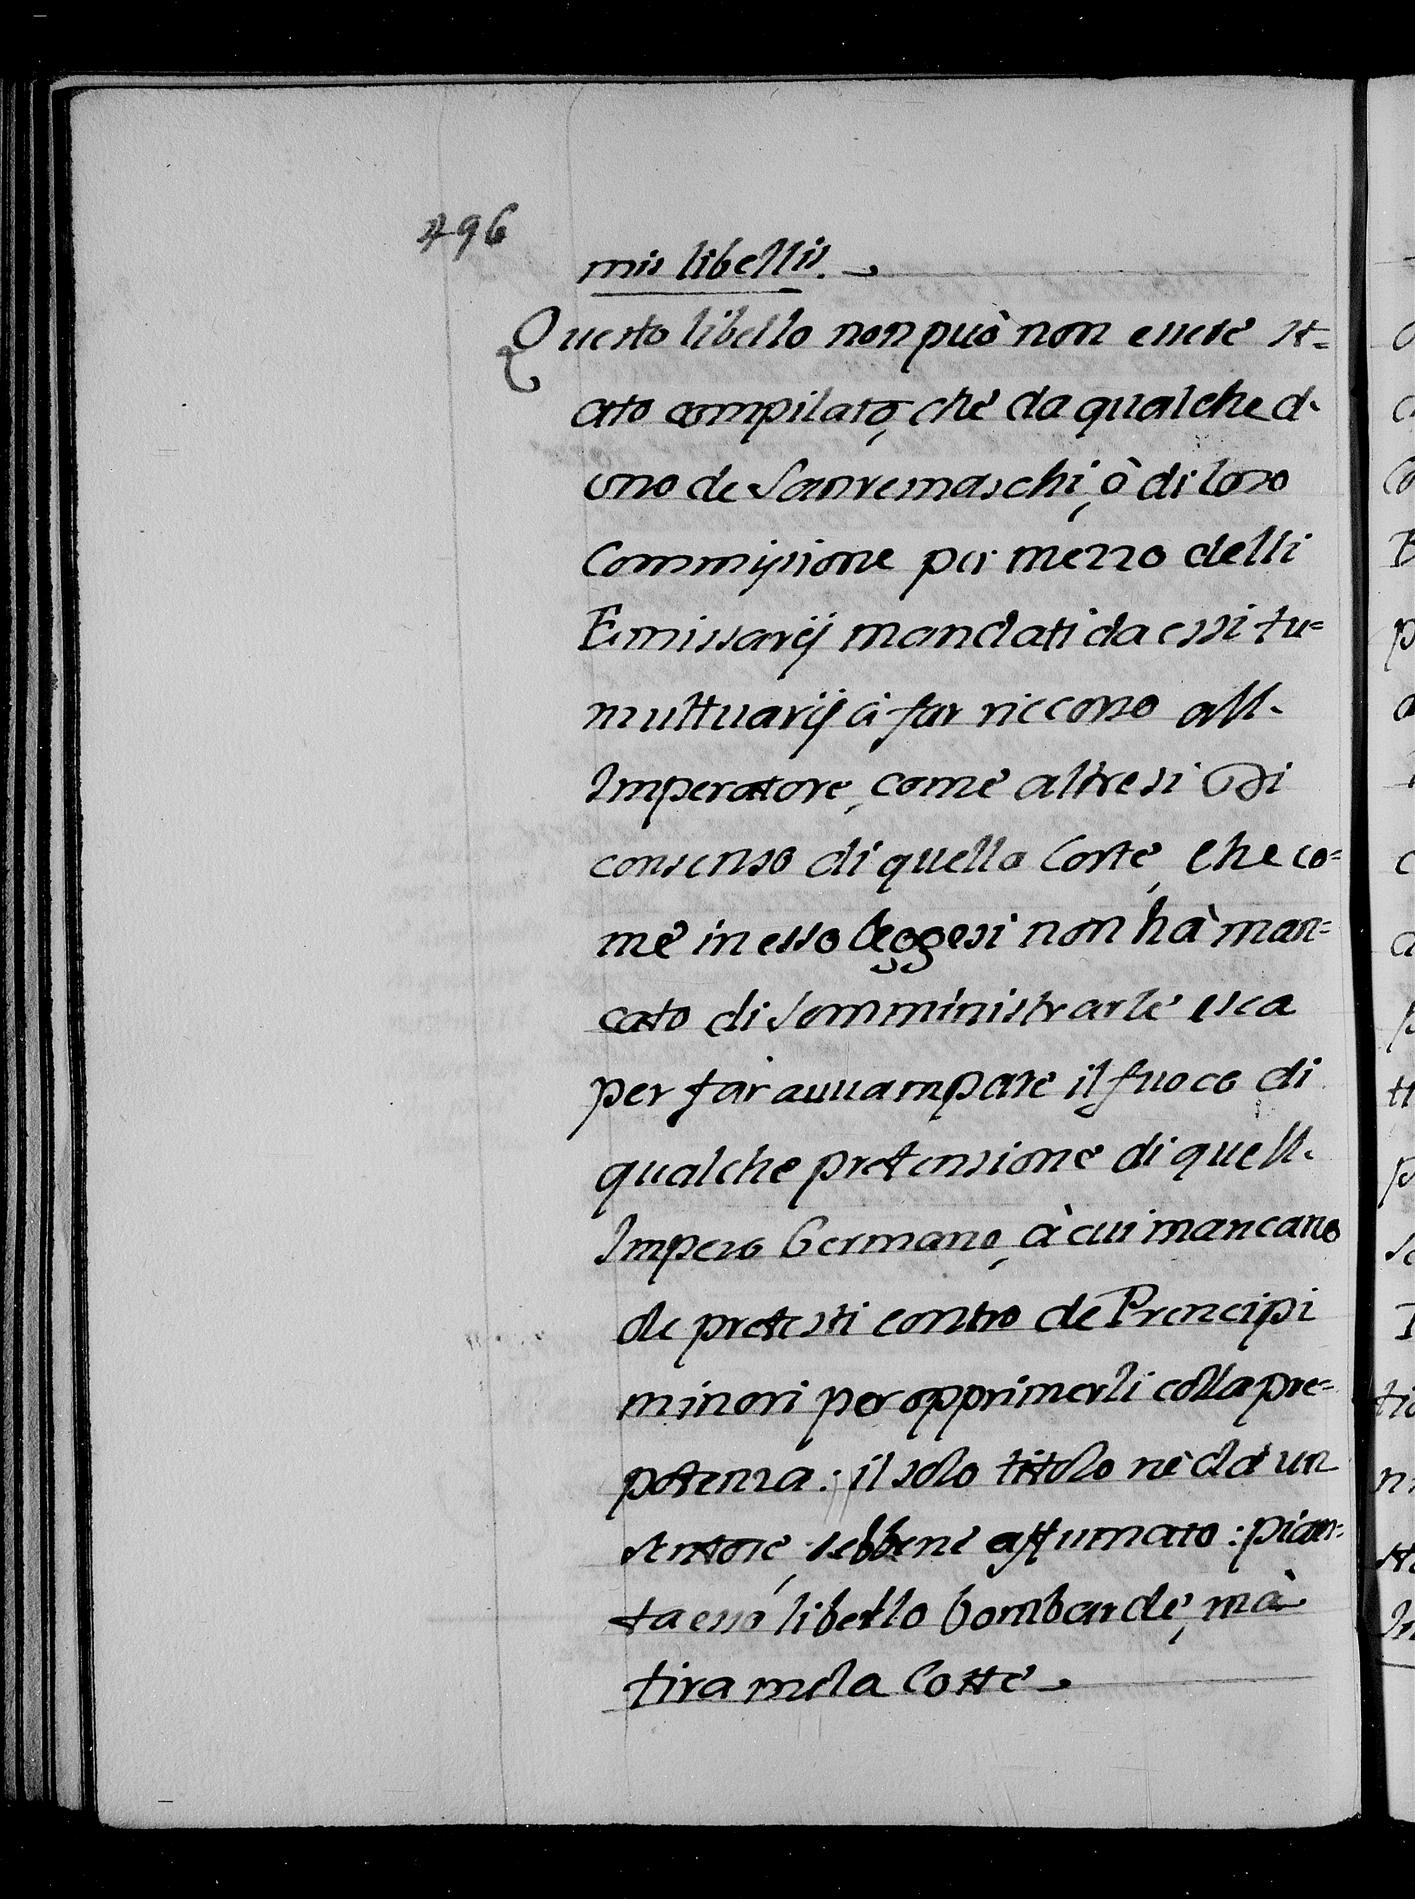 496
mis libellis.
Questo libello non può non essere st=
ato compilato, che da qualche d.
uno de Sanremaschi, ò di loro
Commissione per mezzo delli
Emissarij mandati da essi tu=
multuarij à far riccorso all.
Imperatore, come altresi di
consenso di quella Corte, che co=
me in esso leggesi non hà man=
cato di somministrarle esca
per far auuampare il fuoco di
qualche pretensione di quell.
Impero Germano, à cui mancano
de pretesti contro de Prencipi
minori per opprimerli colla pre=
potenza: il solo titolo ne dà un
sentore, sebbene affumato: pian=
ta esso libello bombarde, mà
tira mela Cotte.